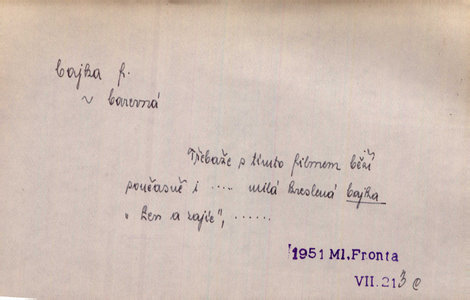 bajka f.
~ barevná
Třebaže s tímto filmem běží
současně i .... milá kreslená bajka
„Lev a zajíc", ......
1951 Ml.Fronta
VII.213